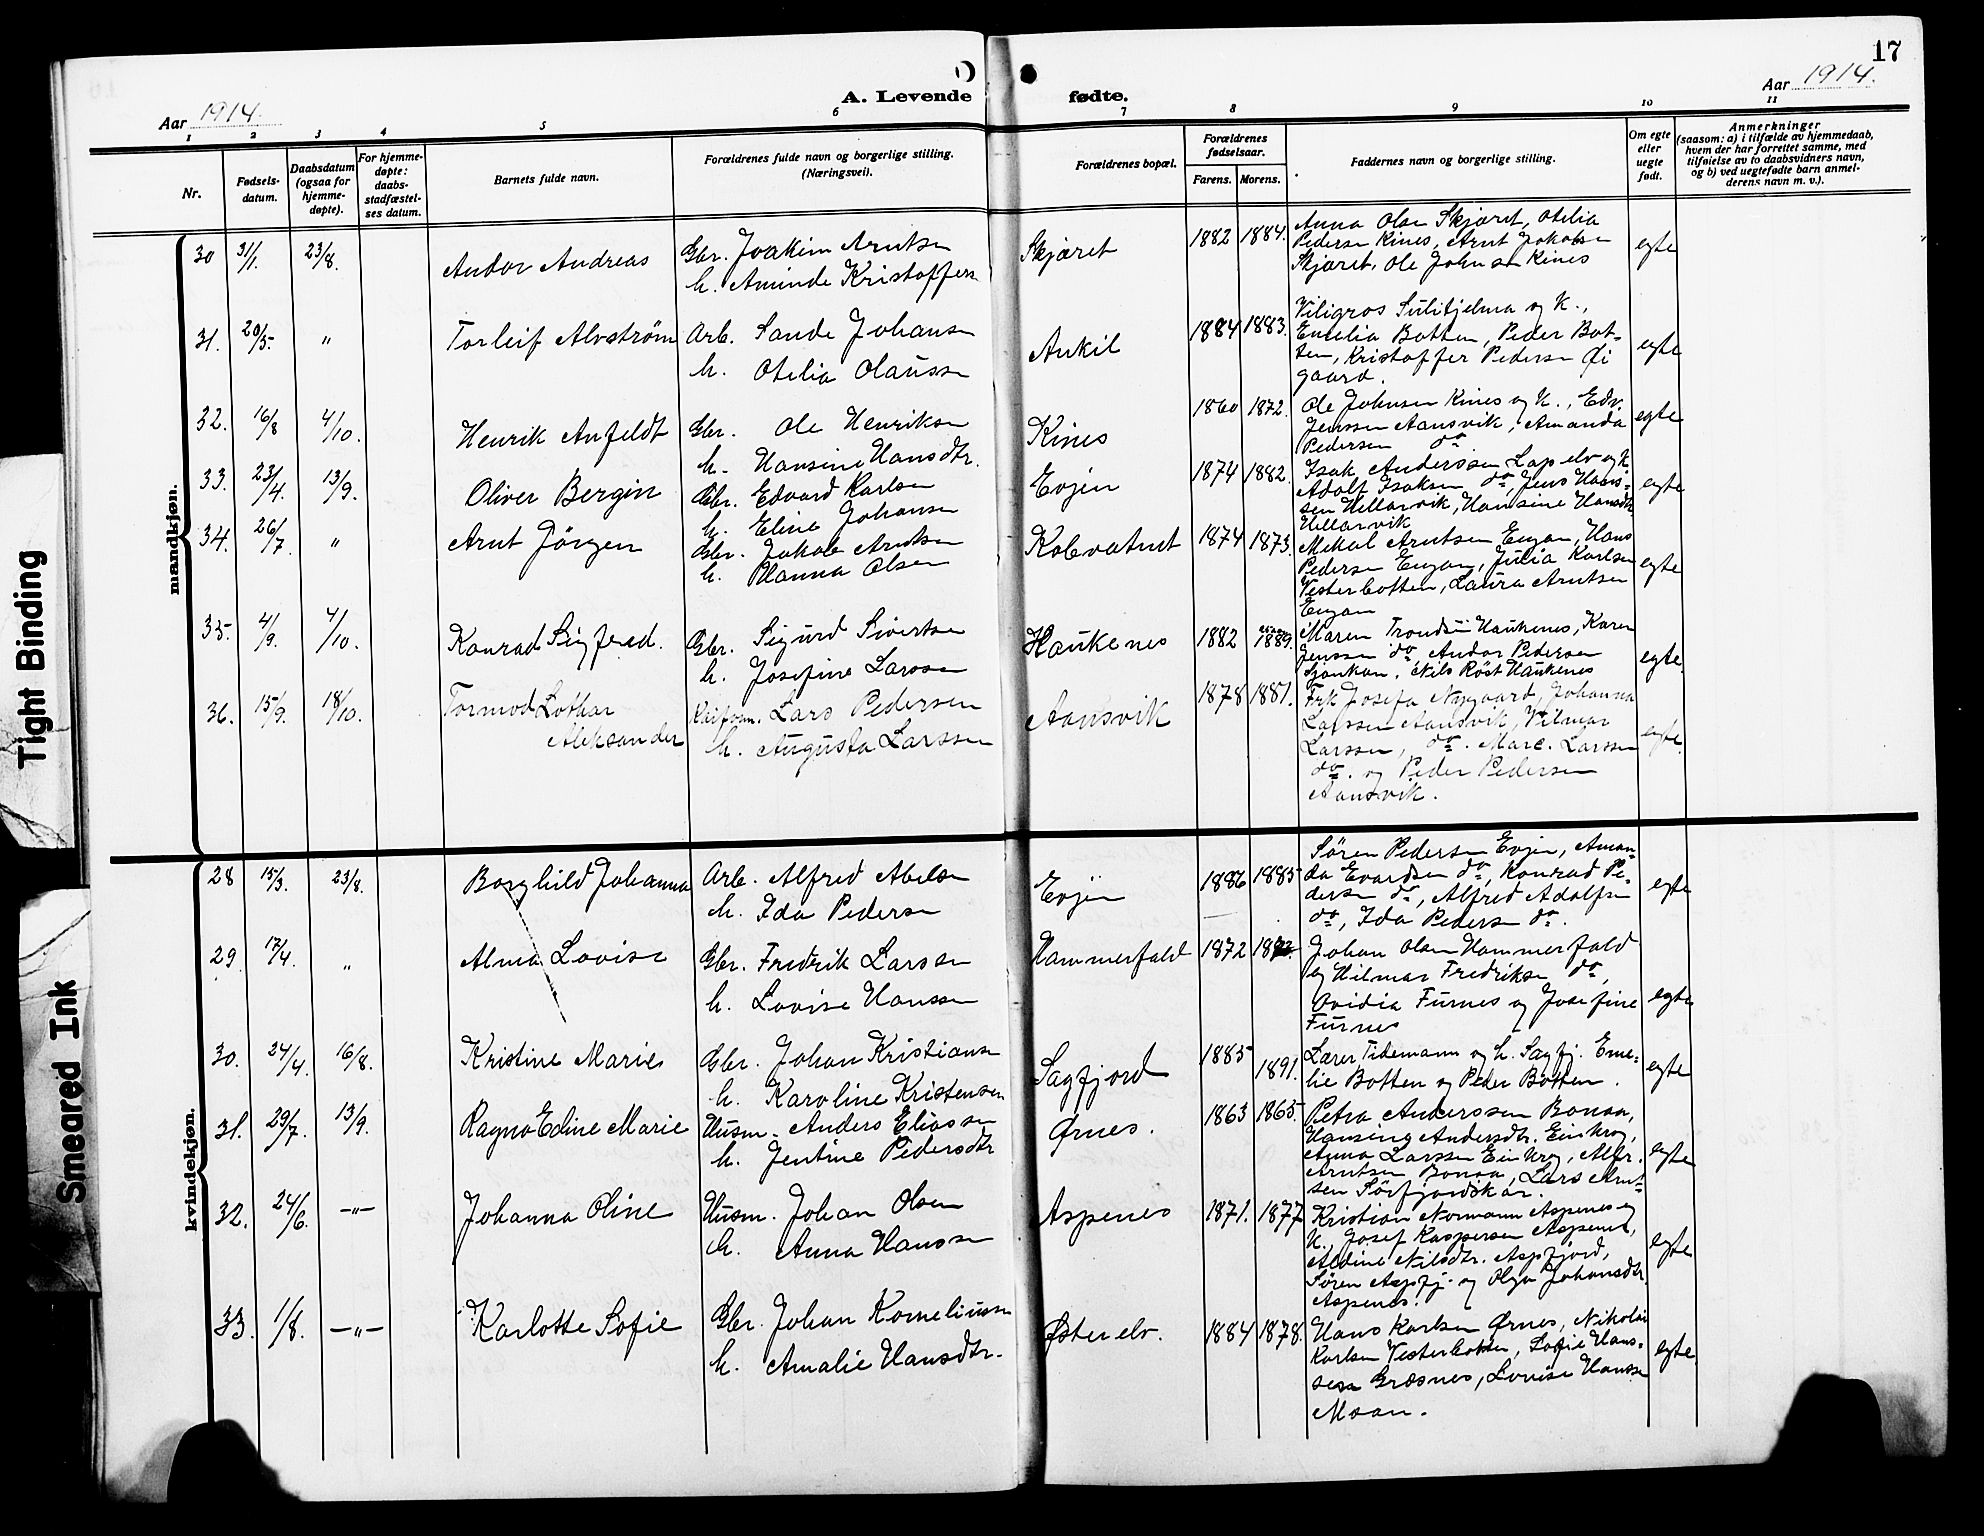 17
Aar 1914.
A. Levende fødte.
Aar 1914.
1 2 3 4 5 6 7 8 9 10 11
Nr.
Fødsels-
datum.
Daabsdatum
(ogsaa for
hjemme-
døpte).
For hjemme-
døpte:
daabs-
stadfæstel-
ses datum.
Barnets fulde navn.
Forældrenes fulde navn og borgerlige stilling.
(Næringsvei).
Forældrenes bopæl.
Forældrenes
fødselsaar.
Farens. Morens.
Faddernes navn og borgerlige stilling.
Om egte
eller
uegte
født.
Anmerkninger
(saasom: a) i tilfælde av hjemmedaab,
hvem der har forrettet samme, med
tilføielse av to daabsvidners navn,
og b) ved uegtefødte barn anmel-
derens navn m. v.).
mandkjøn.
30 31/1. 23/8. Andor Andreas
Gbr. Joakim Arntsen
h. Aminde Kristoffersen
Skjæret 1882 1884.
Anna Olsen Skjæret, Otelia
Pedersen Kines, Arnt Jakobsen
Skjæret, Ole Johnsen Kines
egte
31. 20/5. " Torleif Alvstrøm
Arb. Sande Johansen
h. Otelia Olaussen
Ankil 1884 1883.
Viligros Sulitjelma og h.,
Emelia Botten, Peder Bot-
ten, Kristoffer Pedersen Øi
gaard.
egte
32. 16/8 4/10. Henrik Anfeldt
Gbr. Ole Henriksen
h. Hansine Hansdtr.
Kines 1860 1872.
Ole Johnsen Kines og h., Edv.
Jenssen Aansvik, Amanda
Pedersen do
egte
33. 23/4. 13/9. Oliver Bergin
Gbr. Edvard Karlsen
h. Eline Johansen
Evjen 1874 1882.
Isak Anderssen Lapelv og h.
Adolf Isaksen do, Jens Hans-
sen Hellarvik, Hansine Hansdtr
Hellarvik
egte
34. 26/7. " Arnt Jörgen
Gbr. Jakob Arntsen
h. Hanna Olsen
Kobvatnet 1874 1873.
Mikal Arntsen Engan, Hans
Pedersen Engan, Julia Karlsen
Vesterbotten, Laura Arntsen
Engan
egte
35. 4/9. 4/10. Konrad Sigfred.
Gbr. Sigurd Sivertsen
h. Josefine Larssen
Haukenes 1882 1889.
Maren Haukenes, Karen
Jenssen do Andor Pedersen
Sjønkan, Nils Röst Haukenes
egte.
36. 15/9. 18/10. Tormod Lothar
Aleksander
Lars Pedersen
h. Augusta Larssen
Aansvik 1878 1881.
Frk Josefa Nygaard, Johanna
Larssen Aansvik, Vilmar
Larssen, do. Marc. Larssen
do. og Peder Pedersen
Aansvik.
egte.
kvindekjøn.
28 15/3. 23/8. Borghild Johanna
Arb. Alfred Abelsen
h. Ida Pedersen
Evjen 1886 1885
Sören Pedersen Evjen, Aman-
da Evardsen do, Konrad Pe-
dersen do, Alfred Adolfsen
do, Ida Pedersen do.
egte
29. 17/4. " Alma Lovise
Gbr. Fredrik Larssen
h. Lovise Hanssen
Hammerfald 1872
Johan Olsen Hammerfald
og Hilmar Fredriksen do,
Ovidia Furnes og Josefine
Furnes
egte
30. 24/4. 16/8. Kristine Marie
Gbr. Johan Kristiansen
h. Karoline Kristensen
Sagfjord 1885 1891.
Lærer Tidemann og h. Sagfj. Eme-
lie Botten og Peder Botten.
egte
31. 29/7. 13/9. Ragna Edine Marie
Husm. Anders Eliassen
h. Jentine Pedersdtr
Ørnes. 1863 1865.
Petra Anderssen Bonaa,
Hansine Andersdtr. Einkrog,
Anna Larssen Einkrog, Alfr.
Arntsen Bonaa, Lars Arnt-
sen Sörfjordskar.
egte
32. 24/6. —"— Johanna Oline
Husm. Johan Olsen
h. Anna Hanssen
Aspenes 1871. 1877
Kristian Normann Aspenes og
h., Josef Kaspersen Aspenes,
Aldine Nilsdtr. Aspfjord,
Sören Aspfj. og Olga Johansdtr
Aspenes.
egte
33. 1/8. —"— Karlotte Sofie
Gbr. Johan Korneliussen
h. Amalie Hansdtr.
Østerelv. 1884 1878.
Hans Karlsen Ørnes, Nikolai
Karlsen Vesterbotten, Sofie Hans-
sen Græsnes, Lovise Hanssen
Moan.
egte
Tight Binding
Smeared Ink